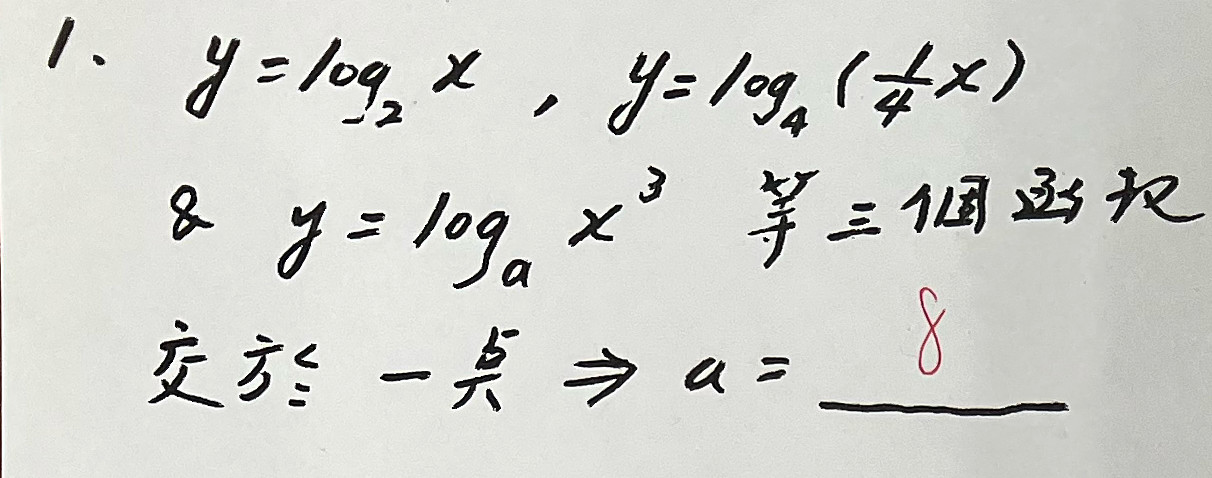 1. y = log₂ x , y = log₄ (1/4 x)
& y = logₐ x³ 等三個函数
交於一点 ⇒ a = 8